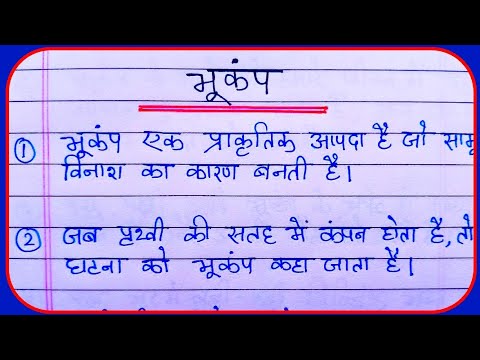 भूकंप
① भूकंप एक प्राकृतिक आपदा है जो
विनाश का कारण बनती है।
② जब पृथ्वी की सतह में कंपन होता है, तो
घटना को भूकंप कहा जाता है।